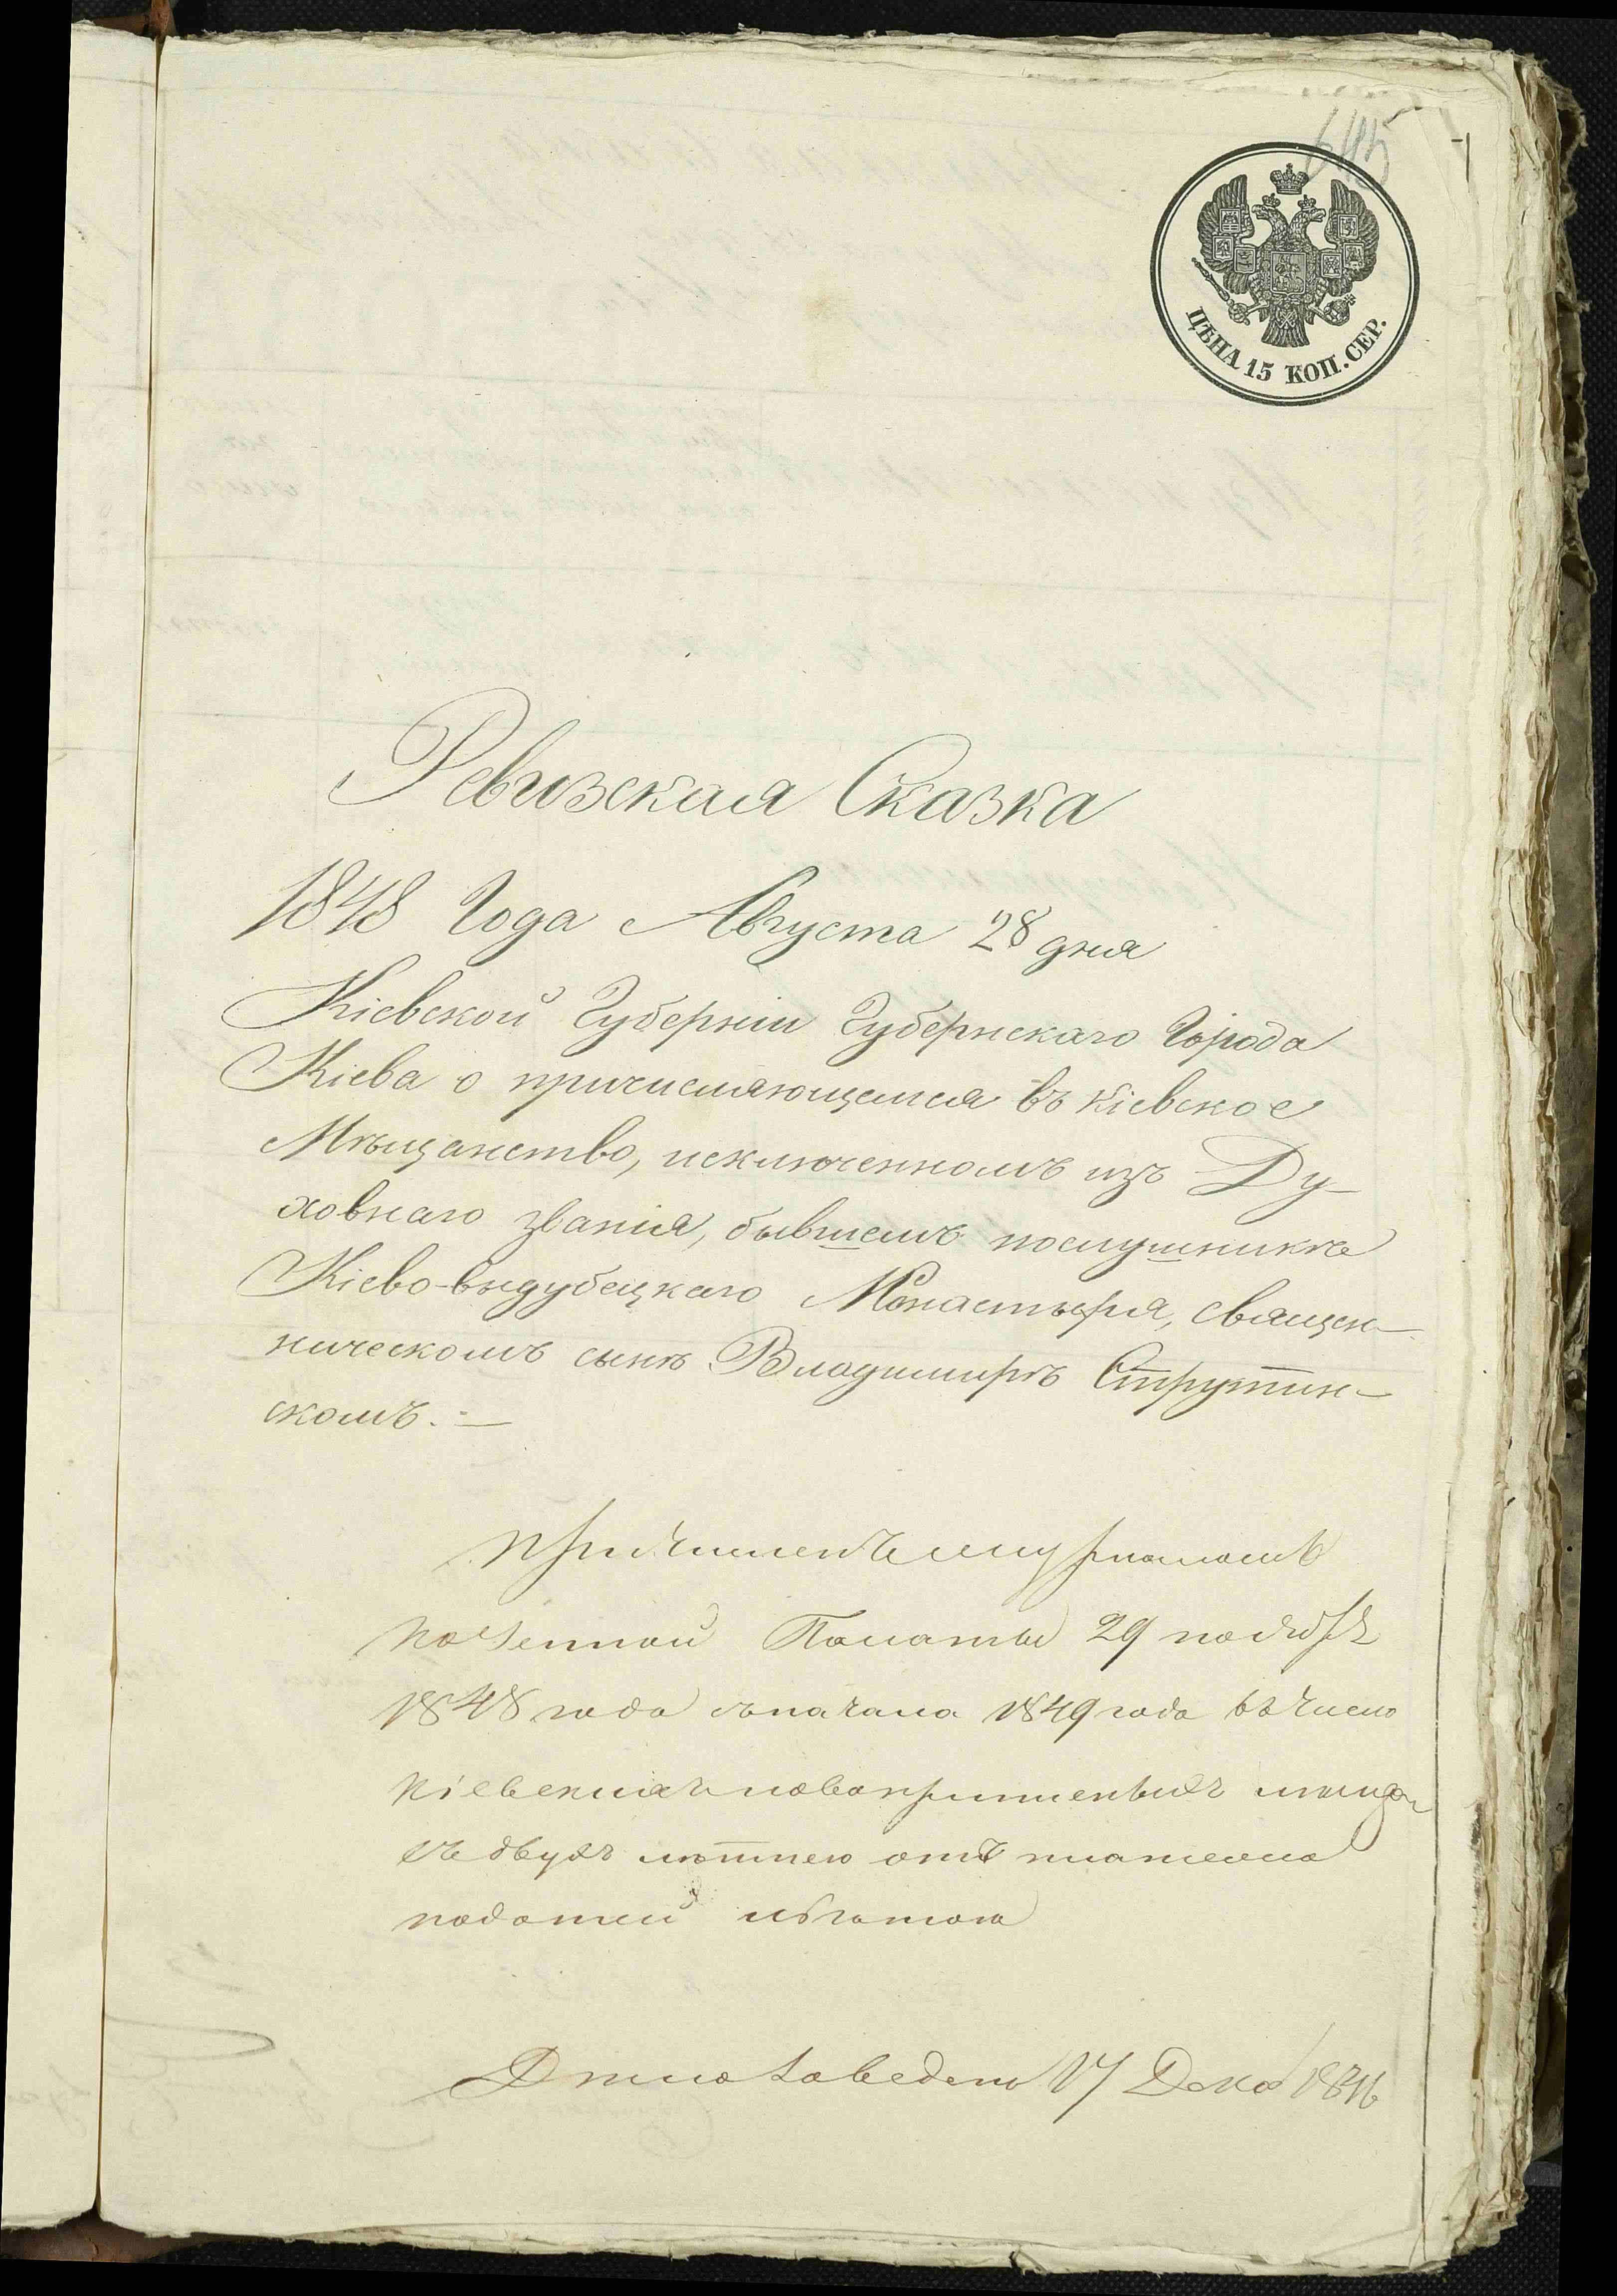 645
ЦѢНА 15 КОП. СЕР.
Ревизская Сказка
1848 Года Августа 28 дня
Кіевской Губерніи Губернскаго Города
Кіева о причисляющемся въ Кіевское
Мѣщанство, исключенномъ изъ Ду-
ховнаго званія, бывшемъ послушникѣ
Кіево-выдубецкаго Монастыря, священ-
ническомъ сынѣ Владимирѣ Струтин-
скомъ. —
Причисленъ
Казенной Палаты 29 ноября
1848 года съ начала 1849 года въ число
Кіевскихъ мѣщан
съ двухъ лѣтнею отъ платежа
податей льготою
Дѣло заведено 17 Дека